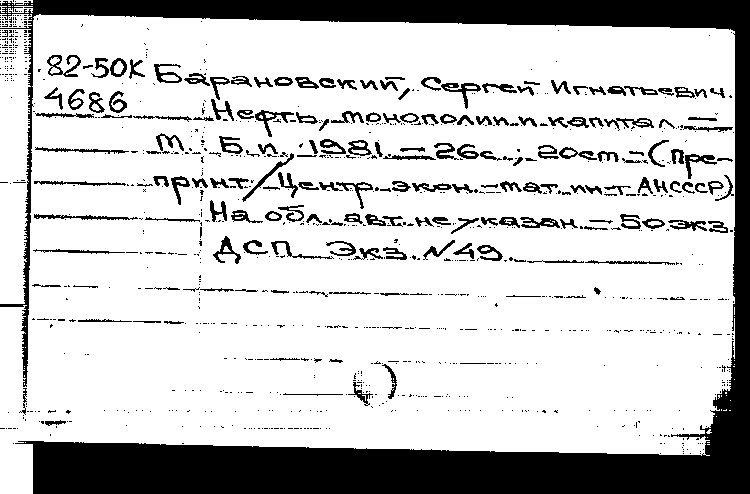 82-50К Барановский, Сергей Игнатьевич.
4686 Нефть, монополии и капитал. —
М.: Б.и., 1981. — 26с.; 20см. — (Пре-
принт / Центр. экон.-мат. ин-т АНСССР)
На обл. авт. не указан. — 50 экз.
ДСП. Экз. №49.